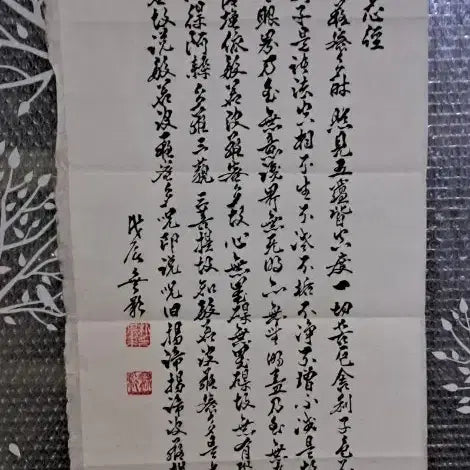 心經
羅蜜多時照見五蘊皆空度一切苦厄舍利子色
子是諸法空相不生不滅不垢不淨不增不減是故
眼界乃至無意識界無無明亦無無明盡乃至無
埵依般若波羅蜜多故心無罣礙無罣礙故無有恐
得阿耨多羅三藐三菩提故知般若波羅蜜多是大
故說般若波羅蜜多咒即說咒曰揭諦揭諦波羅揭
戊辰